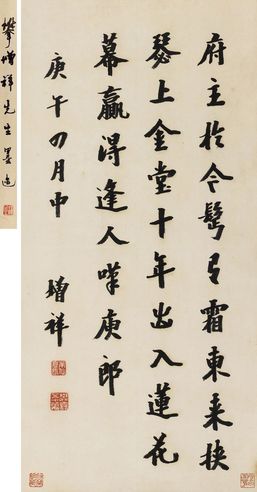 樊增祥先生墨迹
府主於今鬢有霜東來挾
瑟上金堂十年出入蓮花
幕贏得逢人嘆庾郎
庚午四月中
增祥